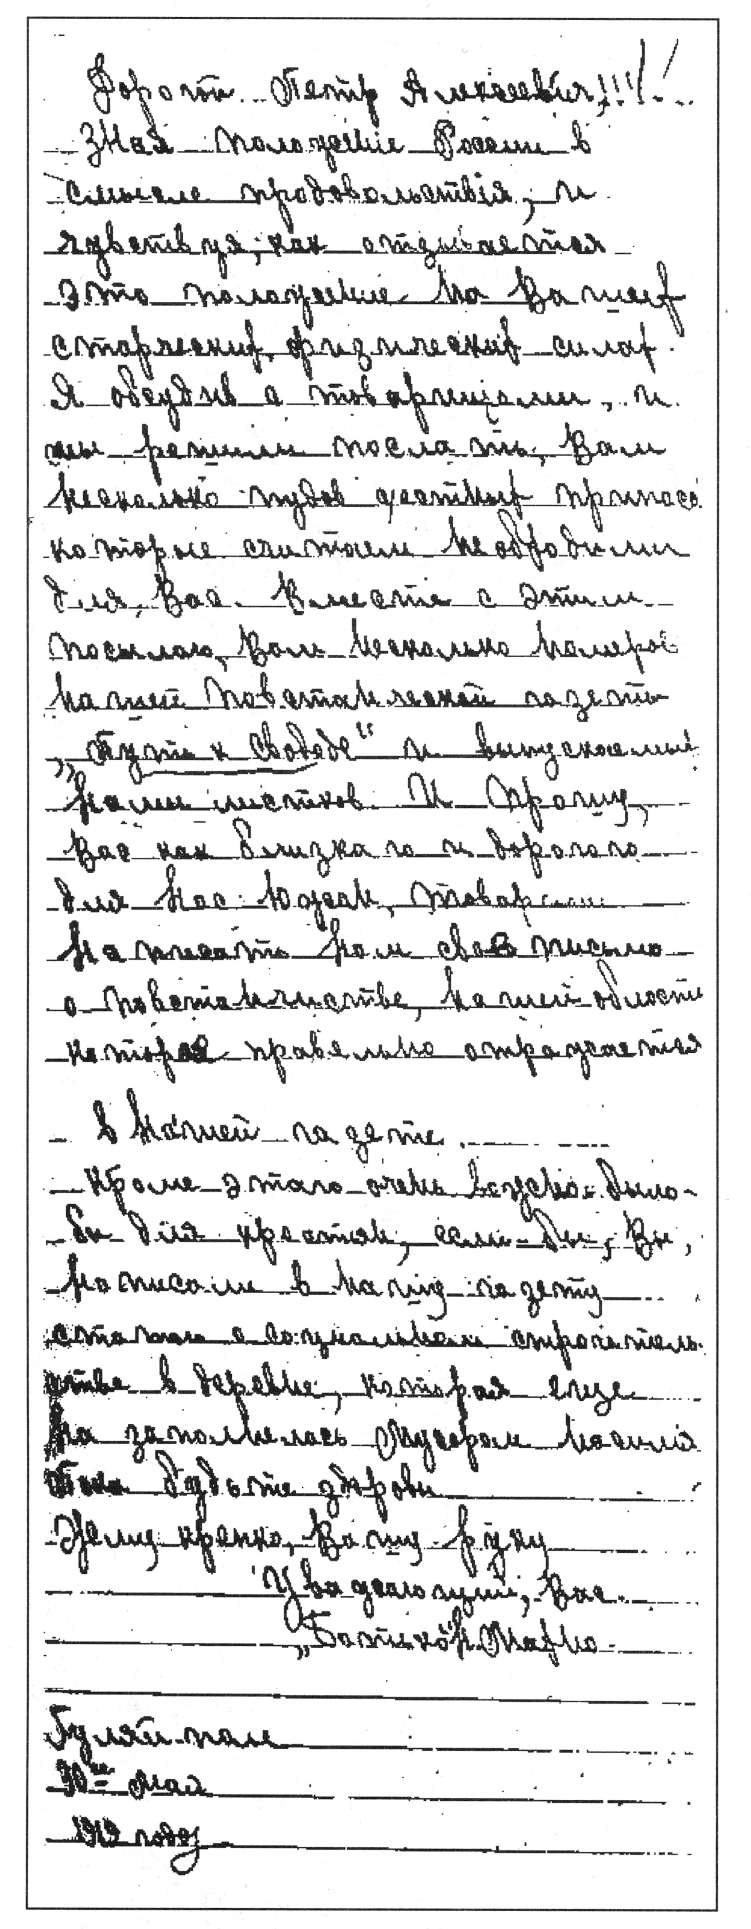 Дорогой Петр Алексеевич!!!!
Зная положение России в
смысле продовольствія, и
чувствуя, как отзывается
это положение на Вашех
старческих, физических силах.
Я обсудив с товарищами, и
мы решили послать, Вам
несколько пудов честных припасо
которые считаем необходими
для, Вас. Вместе с этим
посылаю, Вам несколько номеров
нашей повстанческой газеты
„Путь к Свободе" и выпускаемый
нами листков. И прошу,
Вас как близкаго и дорогого
для нас Южан, товарищ
написать нам свое письмо
о повстанчистве, нашей области
которая правельно отражается
в нашей газете.
Кроме этого очень было-
бы для крестян, если-бы, Вы,
написали в нашу газету
статью о социальном строитель
стве в деревне, которая еще
на заполнелась мусором насилія
Пока будьте здорови
Жму крепко, Вашу руку
Уважающий, Вас.
„Батько" Н. Махно.
Гуляй-поле
30го Мая
1919 года